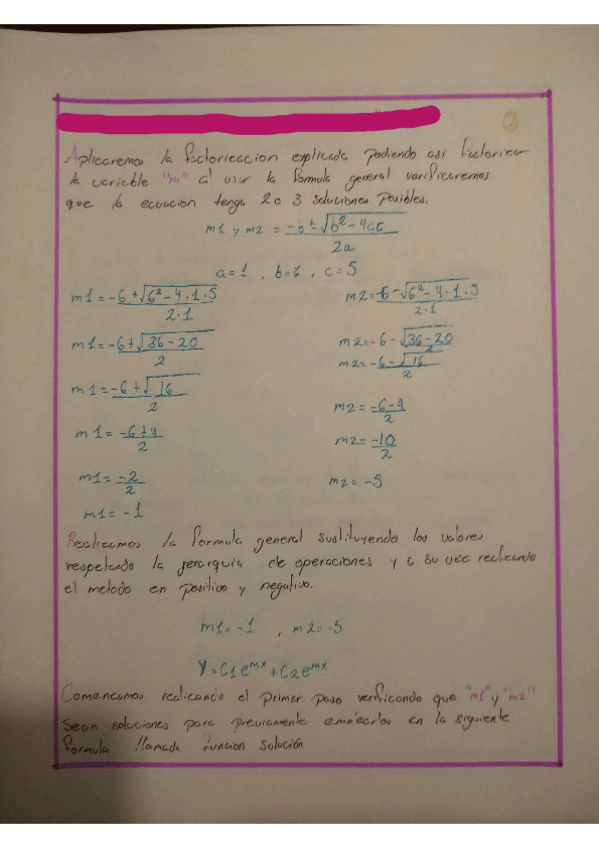 Aplicaremos la factorizacion explicada podiendo asi factorizar
la variable "m" al usar la formula general verificaremos
que la ecuacion tenga 2 o 3 soluciones posibles.
m1 y m2 = -b ± √b² - 4ac / 2a
a = 1 , b = 6 , c = 5
m1 = -6 + √6² - 4 · 1 · 5 / 2 · 1
m1 = -6 + √36 - 20 / 2
m1 = -6 + √16 / 2
m1 = -6 + 4 / 2
m1 = -2 / 2
m1 = -1
m2 = -6 - √6² - 4 · 1 · 5 / 2 · 1
m2 = -6 - √36 - 20 / 2
m2 = -6 - √16 / 2
m2 = -6 - 4 / 2
m2 = -10 / 2
m2 = -5
Realizamos la formula general sustituyendo los valores
respetando la jerarquia de operaciones y a su vez realizando
el metodo en positivo y negativo.
m1 = -1 , m2 = -5
Y = C1e^mx + C2e^mx
Comenzamos realizando el primer paso verificando que "m1" y "m2"
sean soluciones para previamente en la siguiente
formula llamada funcion solución